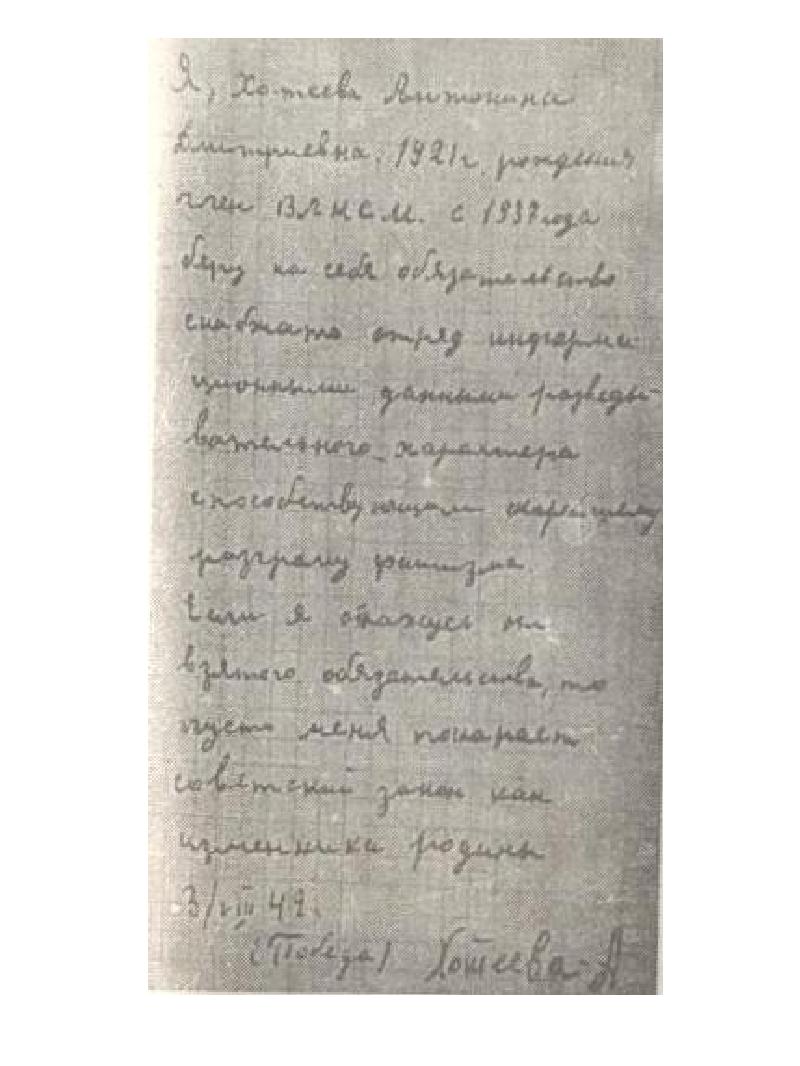 Я, Хотеева Антонина
Дмитриевна, 1921 г. рождения
член ВЛКСМ. с 1937 года
беру на себя обязательство
снабжать отряд информа-
ционными данными разведы-
вательного характера
способствующими скорейшему
разгрому фашизма.
Если я откажусь от
взятого обязательства, то
пусть меня покарает
советский закон как
изменника родины
3/VIII 42.
(Победа) Хотеева А